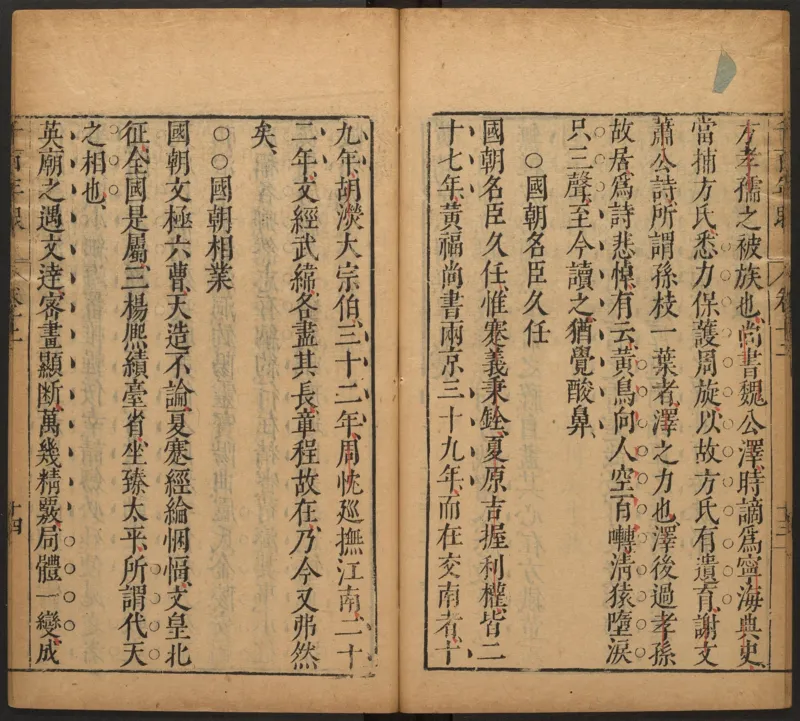 方孝孺之被族也尚書魏公澤時謫爲寧海典史
當捕方氏悉力保護周旋以故方氏有遺育謝文
肅公詩所謂孫枝一葉者澤之力也澤後過孝孺
故居爲詩悲悼有云黃鳥向人空百囀清猿墮淚
只三聲至今讀之猶覺酸鼻
○國朝名臣久任
國朝名臣久任惟蹇義秉銓夏原吉握利權皆二
十七年黃福尚書兩京三十九年而在交南者十
九年胡濙大宗伯三十二年周忱廵撫江南二十
二年文經武緯各盡其長章程故在乃今又弗然
矣
○○國朝相業
國朝文極六曹天造不論夏蹇經綸悃愊文皇北
征全國是屬三楊熈績臺省坐臻太平所謂代天
之相也
英廟之遇文達密畫顯断萬幾精覈局體一變成
十四